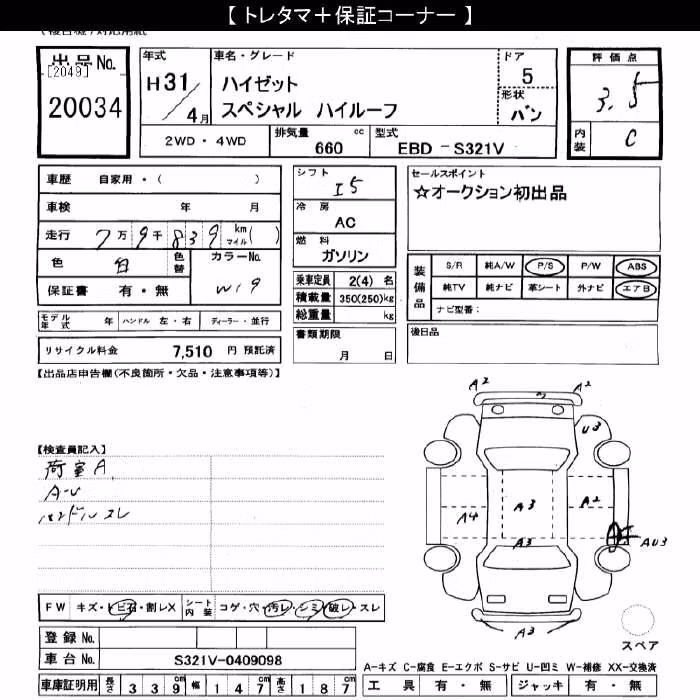 【 トレタマ＋保証コーナー 】
出品No.
[2049]
20034
年式
H31/4月
車名・グレード
ハイゼット
スペシャル ハイルーフ
ドア
5
形状
バン
評価点
3.5
内装
C
2WD・4WD
排気量 cc
660
型式
EBD－S321V
車歴 自家用・( )
車検 年 月
走行 7万9千839 km マイル( )
色 白 色替
カラーNo.
W19
保証書 有・無
シフト
I5
冷房
AC
燃料
ガソリン
乗車定員 2(4) 名
積載量 350(250)kg
総重量 kg
書類期限
月 日
セールスポイント
☆オークション初出品
装備品
S/R 純A/W P/S P/W ABS
純TV 純ナビ 革シート 外ナビ エアB
ナビ型番：
後日品
モデル年式 年 ハンドル 左・右 ディーラー・並行
リサイクル料金 7,510 円 預託済
【出品店申告欄(不良箇所・欠品・注意事項等)】
【検査員記入】
荷室A
A-U
ハンドルスレ
A2
A2
U3
A4
A3
A2
A3
AU3
A3
スペア
FW キズ・トビ石・割レX シート内装 コゲ・穴・汚レ・シミ・破レ・スレ
登録No.
車台No. S321V-0409098
A-キズ C-腐食 E-エクボ S-サビ U-凹ミ W-補修 XX-交換済
車庫証明用 長さ 339cm 幅 147cm 高さ 187cm
工具 有・無 ジャッキ 有・無